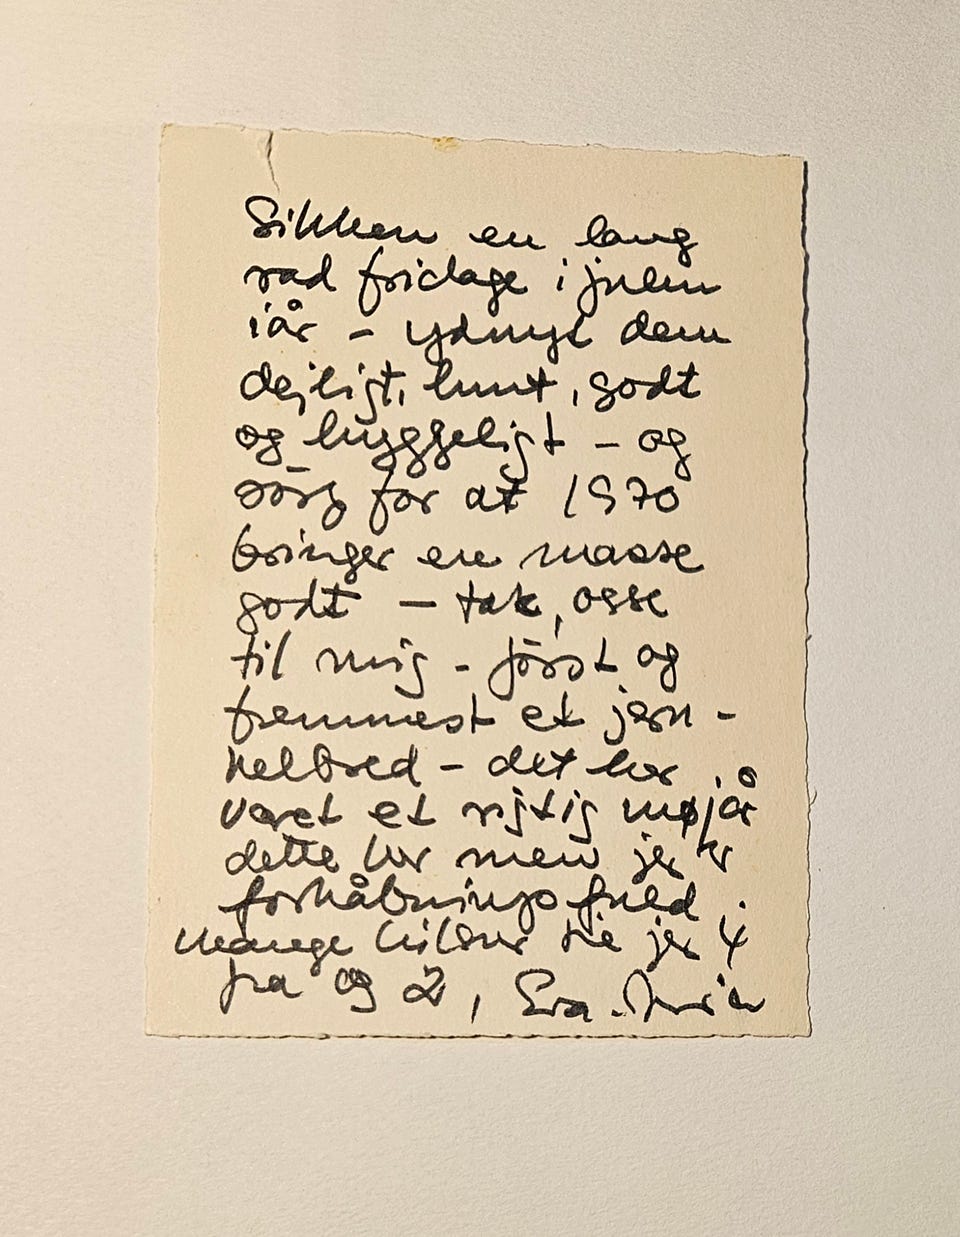 Sikken en lang
rad fridage i julen
iår - ydmyt dem
dejligt, lunt, godt
og hyggeligt - og
sörg for at 1970
bringer en masse
godt - tak, osse
til mig - först og
fremmest et jern-
helbred - det har
været et rigtig møjår
dette her men jeg er
forhåbningsfuld.
Mange hilsner til jer 4
fra os 2, Eva